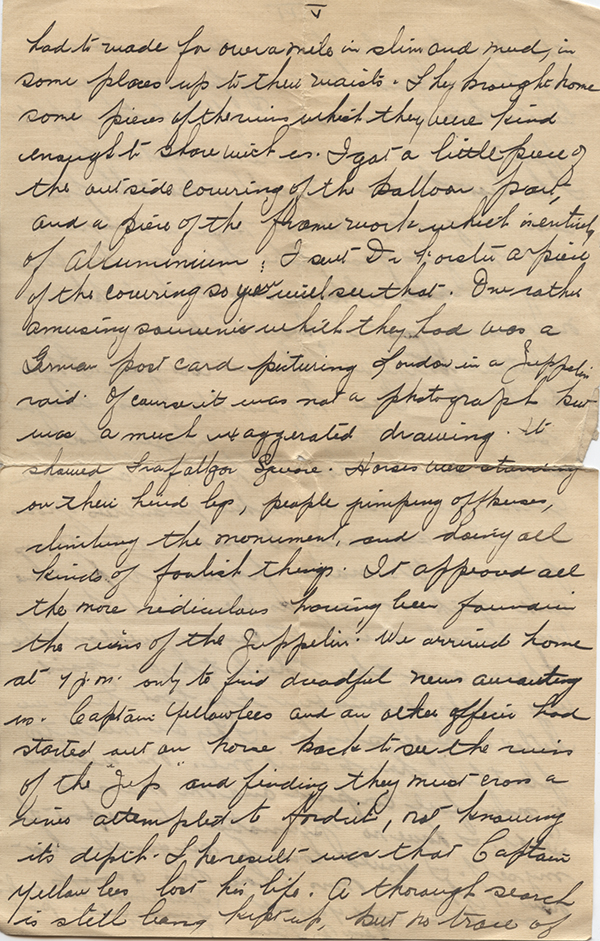 V
had to wade for over a mile in slim and mud, in
some places up to their waists. They brought home
some pieces of the ruins which they were kind
enough to share with us. I got a little piece of
the outside covering of the balloon part,
and a piece of the frame work which is entirely
of alluminium; I sent Dr a piece
of the covering so you will see that. One rather
amusing souvenir which they had was a
German post card picturing London in a Zeppelin
raid. Of course it was not a photograph but
was a much exaggerated drawing. It
showed Trafalgar Square. Horses was standing
on their hind legs, people jumping off buses,
climbing the monument, and doing all
kinds of foolish things. It appeared all
the more ridiculous having been found in
the ruins of the Zeppelin. We arrived home
at 7 p.m. only to find dreadful news awaiting
us. Captain Yellowlees and an other officer had
started out on horse back to see the ruins
of the "Zep" and finding they must cross a
river attempted to ford it, not knowing
it's depth. The result was that Captain
Yellowlees lost his life. A thorough search
is still being kept up, but no trace of